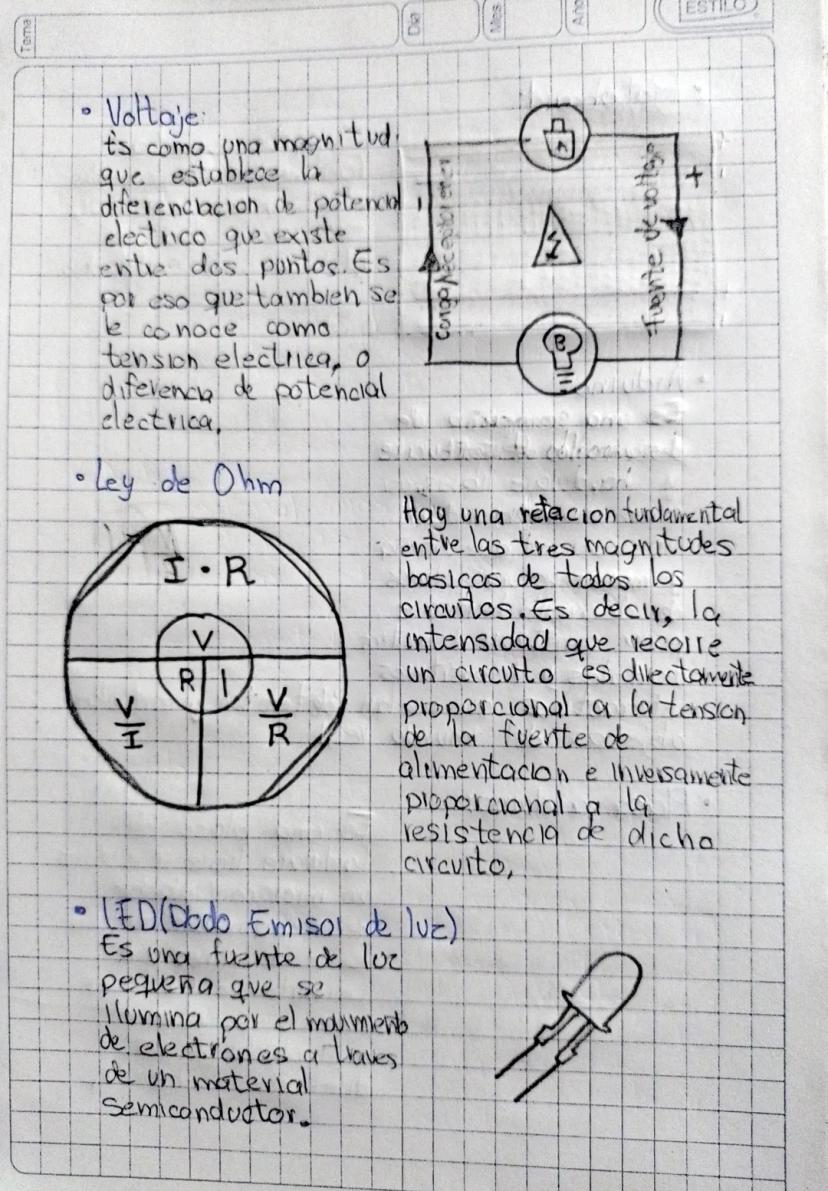 Tema
Dia
Mes
Año
ESTILO
• Voltaje:
Es como una magnitud
que establece la
diferenciacion de potencial
electrico que existe
entre dos puntos. Es
por eso que tambien se
le conoce como
tension electrica, o
diferencia de potencial
electrica.
A
+
-
Fuente de voltaje
B
• Ley de Ohm
I • R
V
R I
V/I
V/R
Hay una relacion fundamental
entre las tres magnitudes
basicas de todos los
circuitos. Es decir, la
intensidad que recorre
un circuito es directamente
proporcional a la tension
de la fuente de
alimentacion e inversamente
proporcional a la
resistencia de dicho
circuito,
• LED(Diodo Emisor de luz)
Es una fuente de luz
pequeña que se
ilumina por el movimiento
de electrones a traves
de un material
semiconductor.